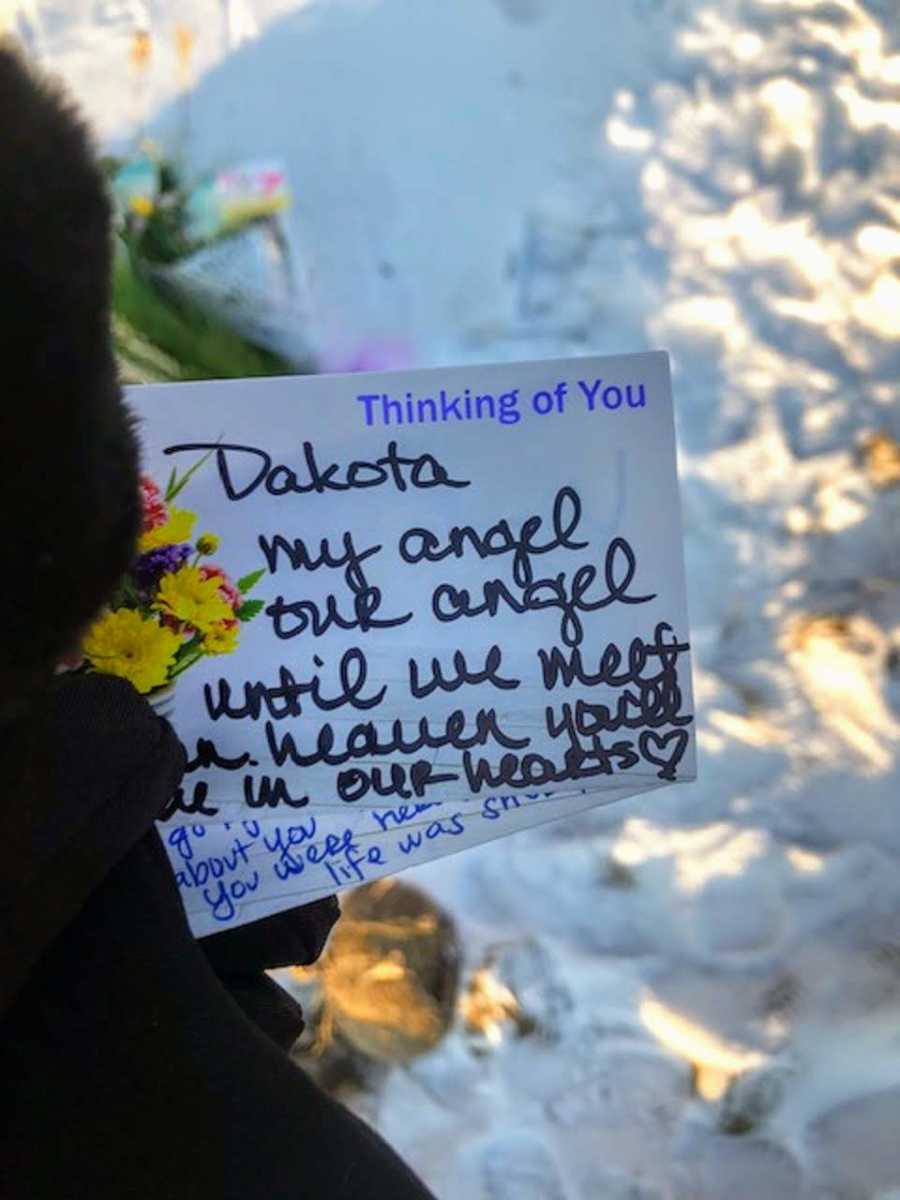 Thinking of You
Dakota
my angel
our angel
until we meet
in heaven you'll
be in our hearts♡
about you
you were
life was